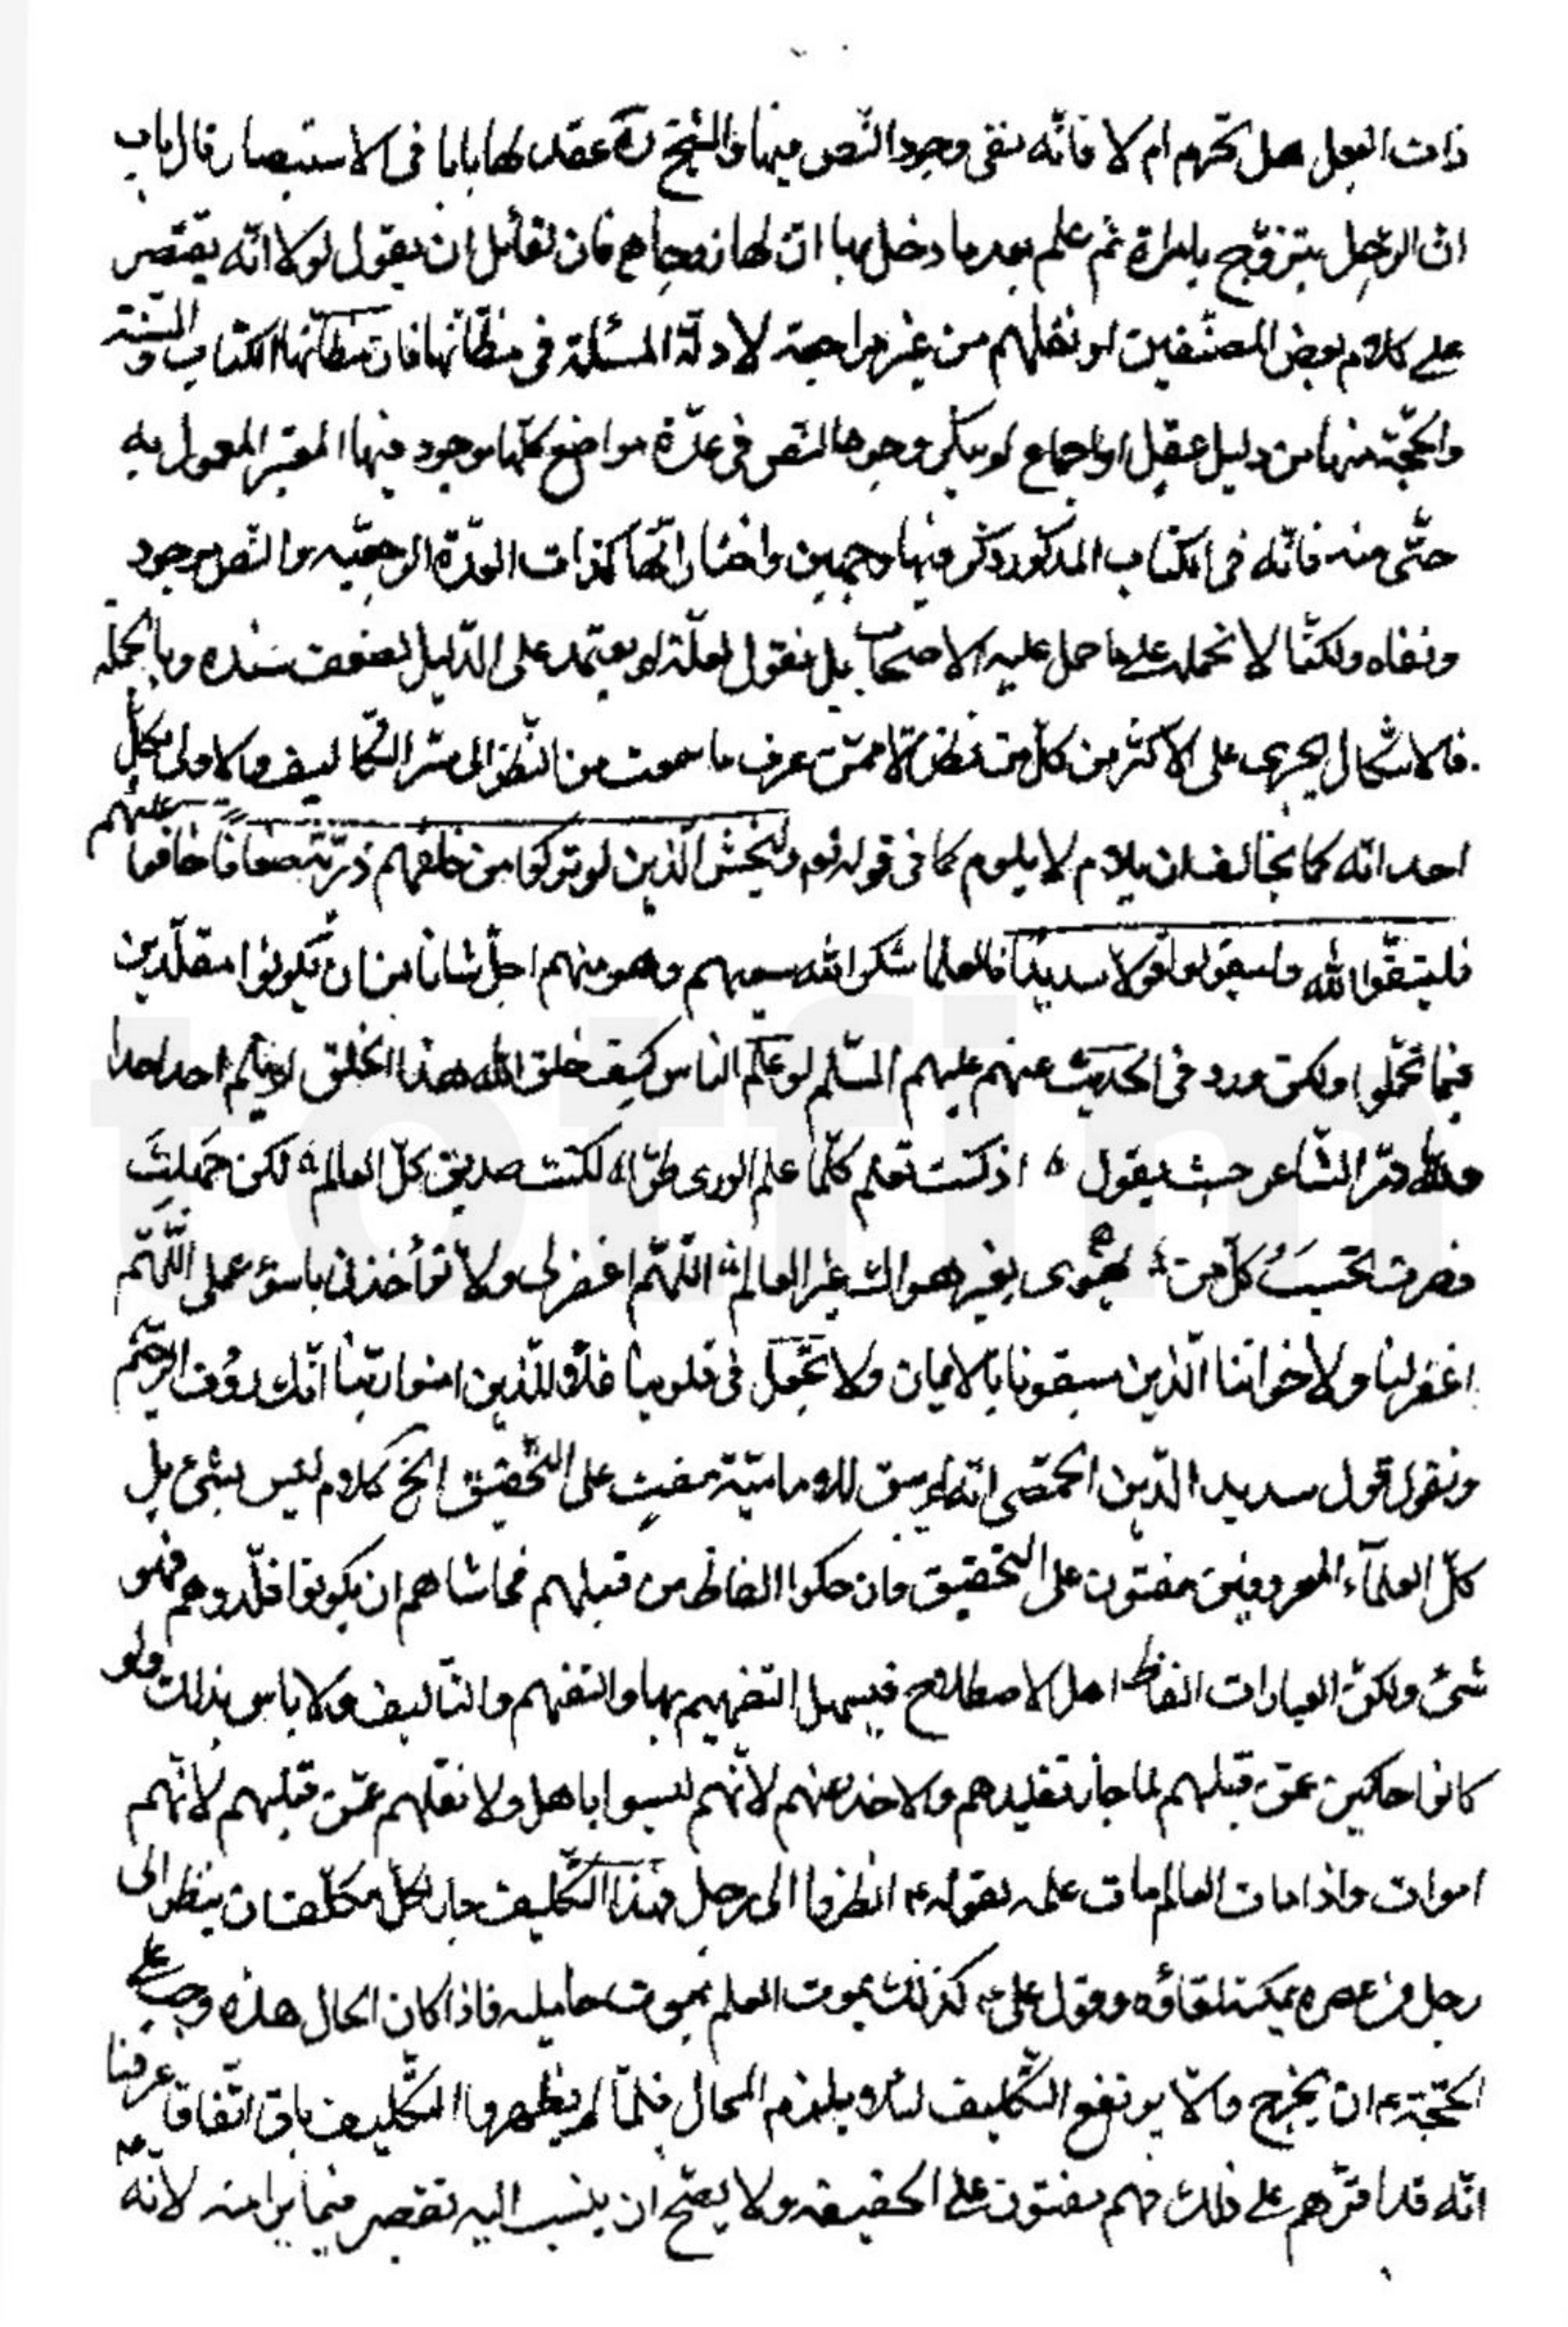 ذات البعل هل تحرم ام لا فانّه نفى وجود النّص فيها والشيخ ره عقد لها بابا فى الاستبصار قال باب
انّ الرّجل يتزوّج بامراة ثم علم بعد ما دخل بها انّ لها زوجا فان لقائل ان يقول لولا انّه يقتصر
على كلام بعض المصنّفين او نقلهم من غير مراجعة لادلّة المسئلة فى مظانّها فان مظانّها الكتاب والسّنة
والحجّة منها من دليل عقل او اجماع لم ينكر وجود النّص فى عدّة مواضع كلّها موجود فيها المعتبر المعمول به
حتّى منه فانّه فى الكتاب المذكور ذكر فيها وجهين واختار انّها كذات العدّة الرجعيّه والنّص موجود
ونفاه ولكنّا لا نحمله على ما حمل عليه الاصحاب بل نقول لعلّه لم يعتمد على الدّليل لضعف سنده وبالجملة
فالاشكال يجرى على الاكثر من كلّ من نظر الّا ممّن عرف ما سمعت من النّظر الى سرّ التّكاليف والاولى بكلّ
احد انّه كما يخاف ان يلام لا يلوم كما فى قوله تع وليخش الّذين لو تركوا من خلفهم ذرّيّة ضعافا خافوا عليهم
فليتّقوا الله وليقولوا قولا سديدًا فالعلما شكر الله سعيهم وهو منهم اجلّ شانا من ان يكونوا مقلّدين
فيما تحمّلوا ولكن ورد فى الحديث عنهم عليهم السّلم لو علم الناس كيف خلق الله هذا الخلق لم يلم احد احدا
ولله درّ الشّاعر حيث يقول اذ كنت تعلم كلّما علم الورى طرّا لكنت صديق كلّ العالم لكن جهلتَ
فصرت تحسبُ كلّ من يهوى بغير هواك غير العالم اللّهم اغفر لى ولا تؤاخذنى باسوء عملى اللّهم
اغفر لنا ولاخواننا الّذين سبقونا بالايمان ولا تجعل فى قلوبنا غلّا للّذين امنوا ربّنا انّك رؤف الرحيم
ونقول قول سديد الدّين الحمّصى انّه لم يبق للاماميّة مفتٍ على التّحقيق الخ كلام ليس بشئ بل
كلّ العلمآء المعروفين مفتون على التحقيق وان حكوا الفاظ من قبلهم فحاشاهم ان يكونوا قلّدوهم فهو
شئ ولكنّ العبارات الفاظ اهل الاصطلاح فيسهل التفهيم بها والتفهم والتاليف ولا باس بذلك ولو
كانوا حاكين عمّن قبلهم لما جاز تقليدهم والاخذ عنهم لانّهم ليسوا باهل ولا نقلهم عمّن قبلهم لانّهم
اموات واذا مات العالم مات علمه بقوله ع انظروا الى رجل وهذا التّكليف جار لكلّ مكلّف ان ينظر الى
رجل فى عصره يمكنه لقاؤه وقول على ع كذلك يموت العلم بموت حامليه فاذا كان الحال هذه وجب على
الحجّة ع ان يخرج والّا يرتفع التّكليف لئلا يلزم المحال فلمّا لم يظهر والتّكليف باق اتّفاقا عرفنا
انّه قد اقرّهم على ذلك فهم مفتون على الحقيقه ولا يصحّ ان ينسب اليه تقصير فيما يرا منه لانّه